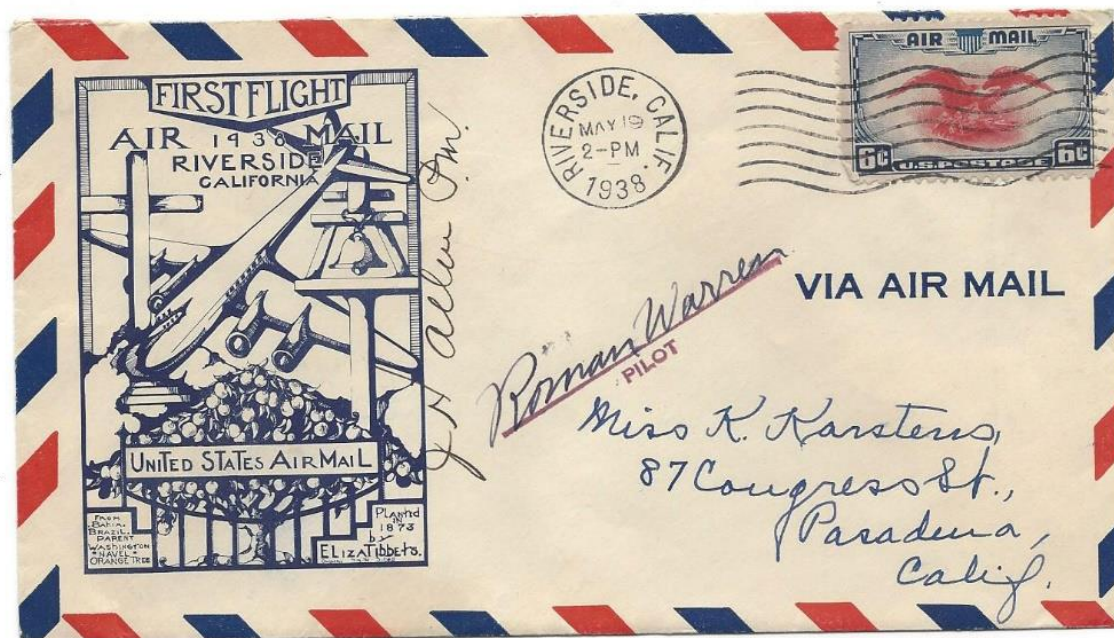 FIRST FLIGHT
AIR 1938 MAIL
RIVERSIDE
CALIFORNIA
UNITED STATES AIR MAIL
FROM
BAHIA,
BRAZIL.
PARENT
WASHINGTON
NAVEL
ORANGE TREE
PLANTED
IN
1873
by
ELIZA TIBBETS.
P.M.
RIVERSIDE, CALIF.
MAY 19
2-PM
1938
AIR MAIL
6c U.S. POSTAGE 6c
VIA AIR MAIL
Roman Warren
PILOT
Miss K. Karstens,
87 Congress St.,
Pasadena,
Calif.